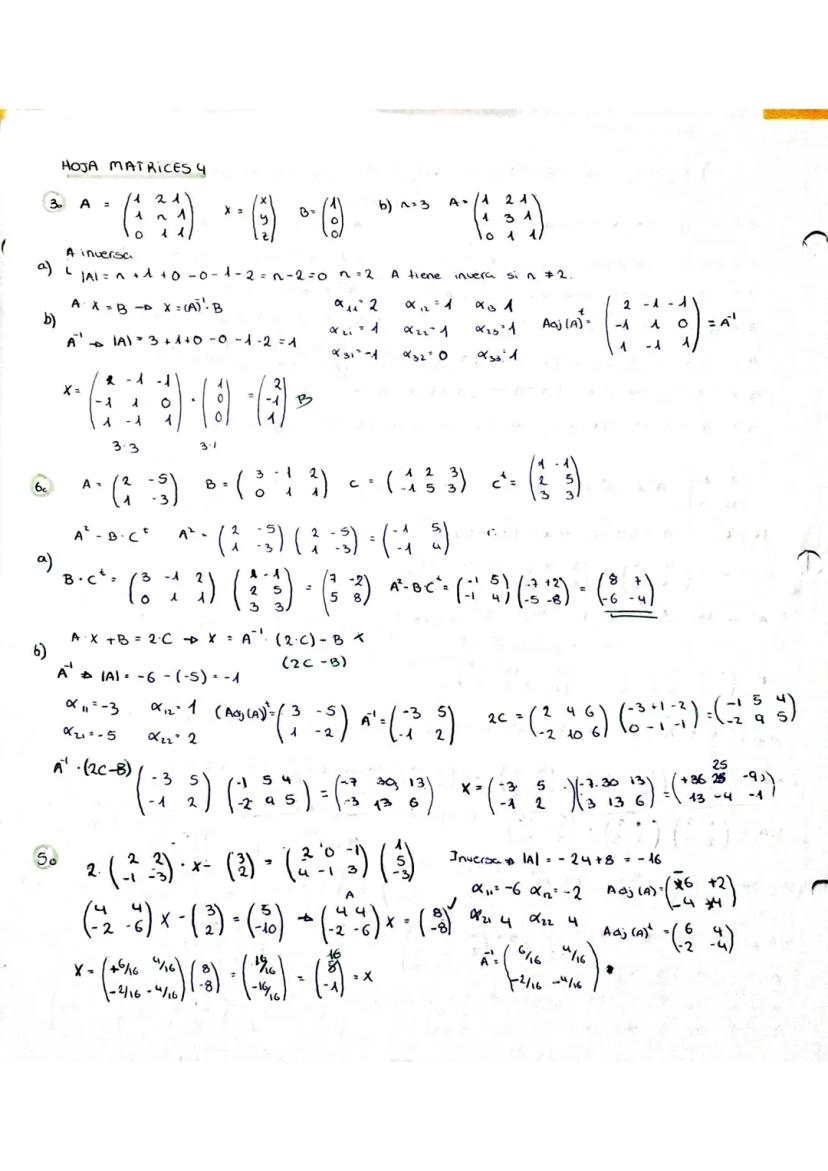 HOJA MATRICES 4
3. A = (1 2 1 / 1 n 1 / 0 1 1) X = (x / y / z) B = (1 / 0 / 0) b) n=3 A = (1 2 1 / 1 3 1 / 0 1 1)
A inversa
a) |A| = n + 1 + 0 - 0 - 1 - 2 = n - 2 = 0 n = 2 A tiene invera si n ≠ 2.
b) A · X = B → X = (A)⁻¹ · B α₁₁ = 2 α₁₂ = 1 α₁₃ 1
A⁻¹ → |A| = 3 + 1 + 0 - 0 - 1 - 2 = 1 α₂₁ = 1 α₂₂ = 1 α₂₃ = 1 Adj (A)ᵗ = (2 -1 -1 / -1 1 0 / 1 -1 1) = A⁻¹
α₃₁ = -1 α₃₂ = 0 α₃₃ = 1
X = (2 -1 -1 / -1 1 0 / 1 -1 1) · (1 / 0 / 0) = (2 / -1 / 1) B
3·3 3·1
6. A = (2 -5 / 1 -3) B = (3 -1 2 / 0 1 1) C = (1 2 3 / -1 5 3) Cᵗ = (1 -1 / 2 5 / 3 3)
A² - B · Cᵗ A² = (2 -5 / 1 -3) (2 -5 / 1 -3) = (-1 5 / -1 4)
a) B · Cᵗ = (3 -1 2 / 0 1 1) (1 -1 / 2 5 / 3 3) = (7 -2 / 5 8) A² - B·Cᵗ = (-1 5 / -1 4) (-7 +2 / -5 -8) = (8 7 / -6 -4)
b) A · X + B = 2·C → X = A⁻¹ · (2·C) - B x
(2C - B)
A⁻¹ → |A| = -6 - (-5) = -1
α₁₁ = -3 α₁₂ = 1 (Adj (A))ᵗ = (3 -5 / 1 -2) A⁻¹ = (-3 5 / -1 2) 2C = (2 4 6 / -2 10 6) (-3 +1 -2 / 0 -1 -1) = (-1 5 4 / -2 9 5)
α₂₁ = -5 α₂₂ = 2
A⁻¹ · (2C-B) (-3 5 / -1 2) (-1 5 4 / -2 9 5) = (-7 30 13 / -3 13 6) X = (-3 5 / -1 2) (-7 30 13 / 3 13 6) = (+36 25 -9 / 13 -4 -1)
5. 2 · (2 2 / -1 -3) · X - (3 / 2) = (2 0 -1 / 4 -1 3) (1 / 5 / -3) Inversa → |A| = -24 + 8 = -16
α₁₁ = -6 α₁₂ = -2 Adj (A) = (-6 +2 / -4 4)
(4 4 / -2 -6) X - (3 / 2) = (5 / -10) → A (4 4 / -2 -6) X = (8 / -8) ✓ α₂₁ 4 α₂₂ 4
Adj (A)ᵗ = (6 4 / -2 -4)
X = (+6/16 4/16 / -2/16 -4/16) (8 / -8) = (16/16 / -16/16) = (/ -1) = X A⁻¹ = (6/16 4/16 / -2/16 -4/16)